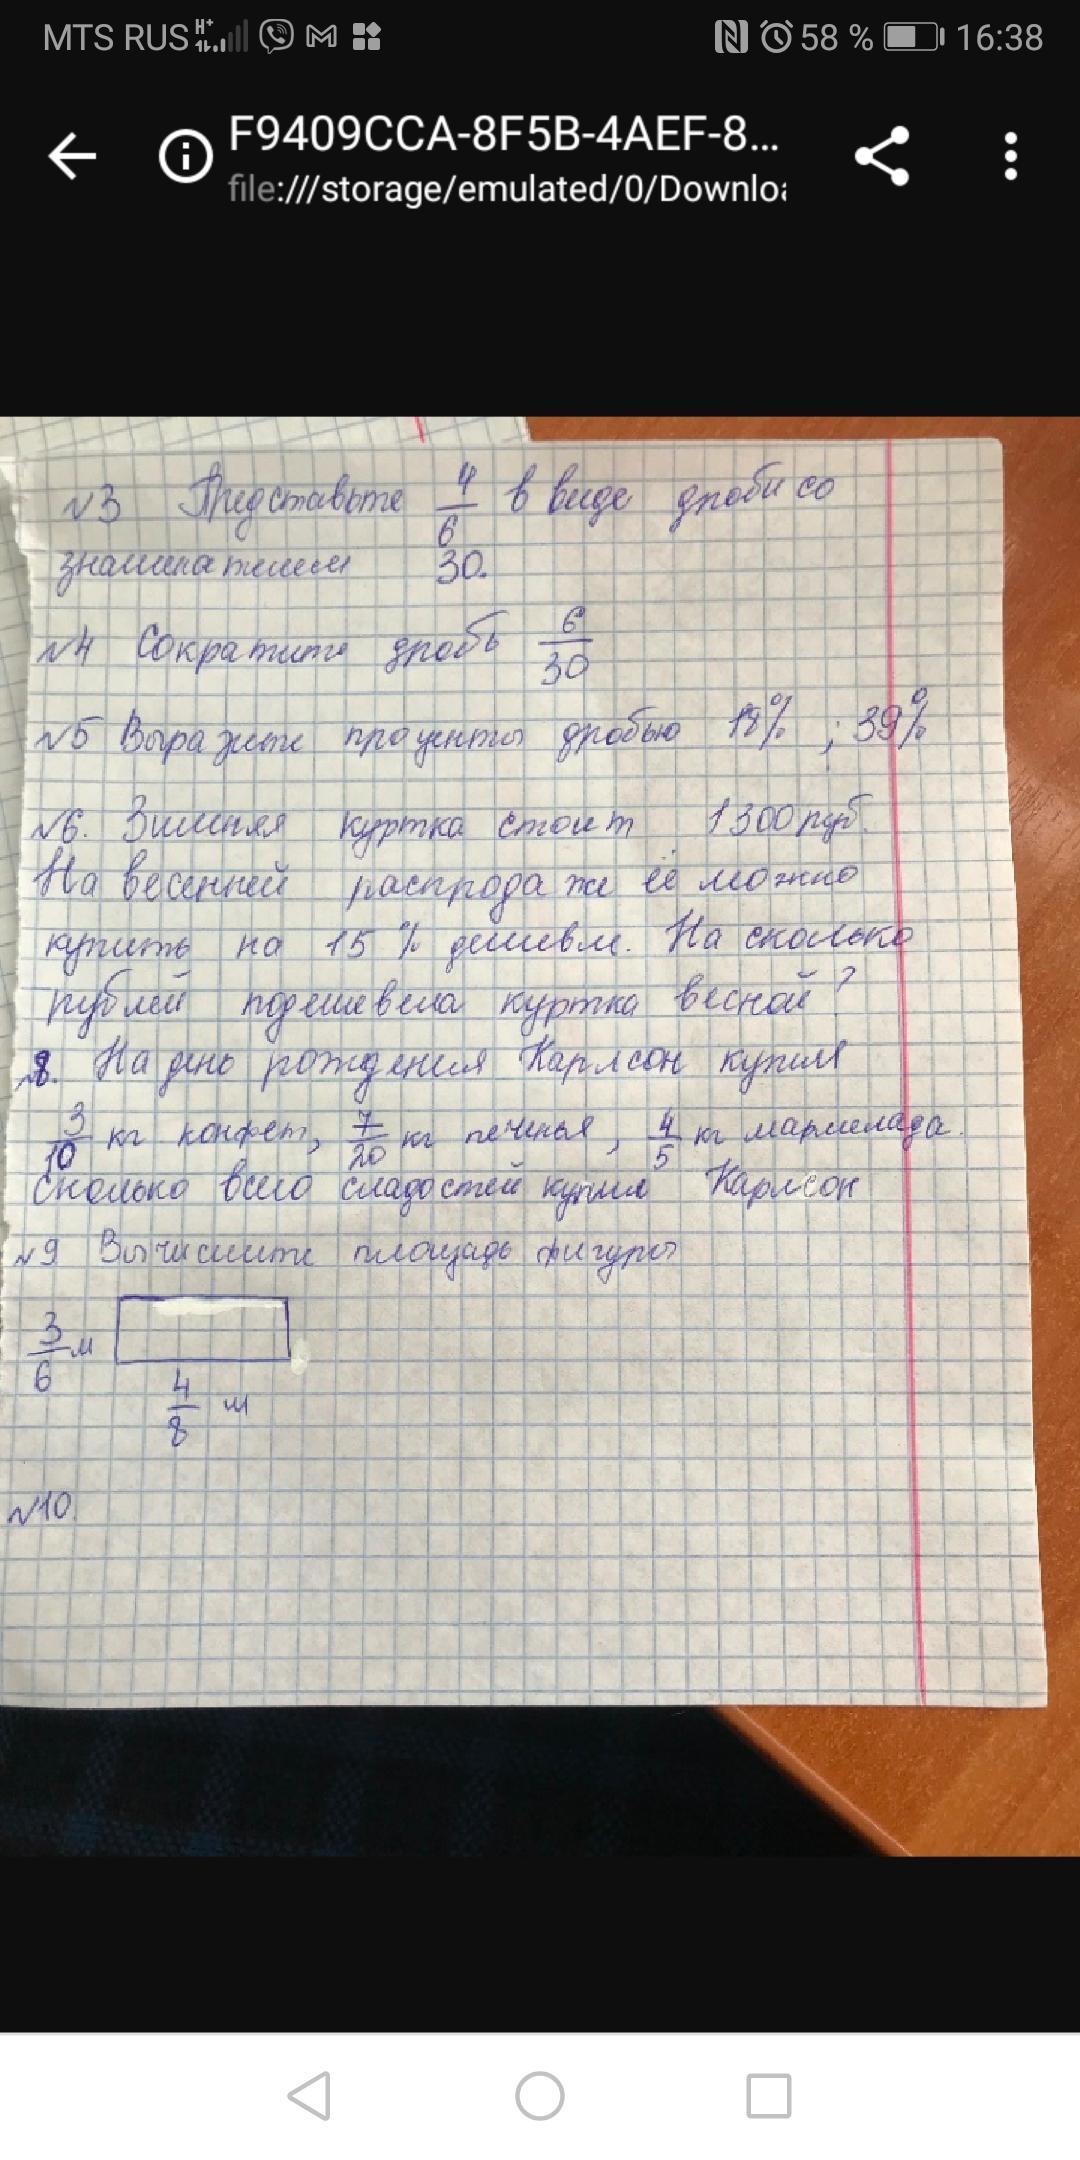 MTS RUS H+ 58 % 16:38
F9409CCA-8F5B-4AEF-8...
file:///storage/emulated/0/Downloa
№3 Представьте 4/6 в виде дроби со
знаменателем 30.
№4 Сократите дробь 6/30
№5 Выразите проценты дробью ; 39%
№6. Зимняя куртка стоит 1300 руб.
На весенней распродаже её можно
купить на 15 % дешевле. На сколько
рублей подешевела куртка весной?
№8. На день рождения Карлсон купил
3/10 кг конфет, 7/20 кг печенья, 4/5 кг мармелада.
Сколько всего сладостей купил Карлсон
№9 Вычислите площадь фигуры
3/6 м
4/8 м
№10.